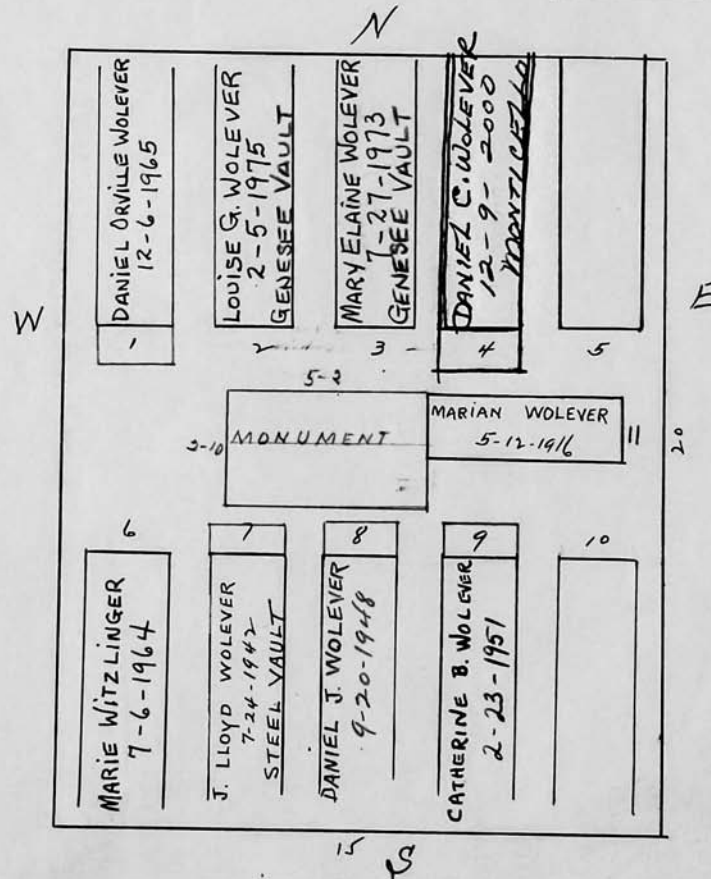 N
DANIEL ORVILLE WOLEVER
12-6-1965
LOUISE G. WOLEVER
2-5-1975
GENESEE VAULT
MARY ELAINE WOLEVER
7-27-1973
GENESEE VAULT
DANIEL C. WOLEVER
12-9-2000
MONTICELLO
W
E
1
2
3
4
5
5-2
2-10
MONUMENT
MARIAN WOLEVER
5-12-1916
11
20
6
7
8
9
10
MARIE WITZLINGER
7-6-1964
J. LLOYD WOLEVER
7-24-1942
STEEL VAULT
DANIEL J. WOLEVER
9-20-1948
CATHERINE B. WOLEVER
2-23-1951
15
S